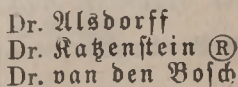 Dr. Alsdorff
Dr. Katzenstein Ⓡ
Dr. van den Bosch